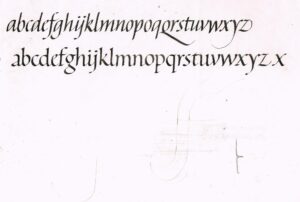 abcdefghijklmnopoqrstuvwxyz
abcdefghijklmnopqrstuvwxyz x